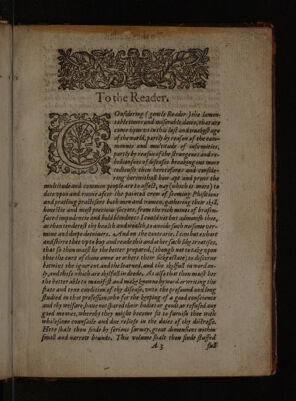 To the Reader.
Considering (gentle Reader) the lamen-
table times and miserable daies, that are
come upon us in this last and weakest age
of the world, partly by reason of the com-
monnes and multitude of infirmities,
partly by reason of the strangenes and re-
belliousnes of diseases breaking out more
tediously then heretofore: and conside-
ring herewithall how apt and prone the
multitude and common people are to assist, nay (which is more) to
dote upon and runne after the painted crew of seeming Physitians
and pratling practisers both men and women, gathering their skill,
benefite and most precious secrets, from the rich mines of brasen-
faced impudencie and bold blindnes: I could not but admonish thee,
as thou tenderest thy health and wealth, to avoide such noisome ver-
mine and deepe deceivers. And on the contrary, I can but exhort
and stirre thee up to buy and reade this and other such like treatises,
that so thou maist be the better prepared, (though not to take upon
thee the cure of thine owne or others their sickestate) to discerne
betwixt the ignorant and the learned, and the skilfull in word on-
ly, and those which are skilfull in deede. As also that thou maist bee
the better able to manifest and make knowne by word or writing the
state and true condition of thy disease, unto the profound and long
studied in that profession, who for the keeping of a good conscience
and thy welfare, have not spared their bodies or goods, or refused any
good meanes, whereby they might become fit to furnish thee with
wholesome counsaile and due reliefe in the daies of thy distresse.
Here shalt thou finde by serious survey, great dimensions within
small and narrow bounds. This volume shalt thou finde stuffed
A 3 full